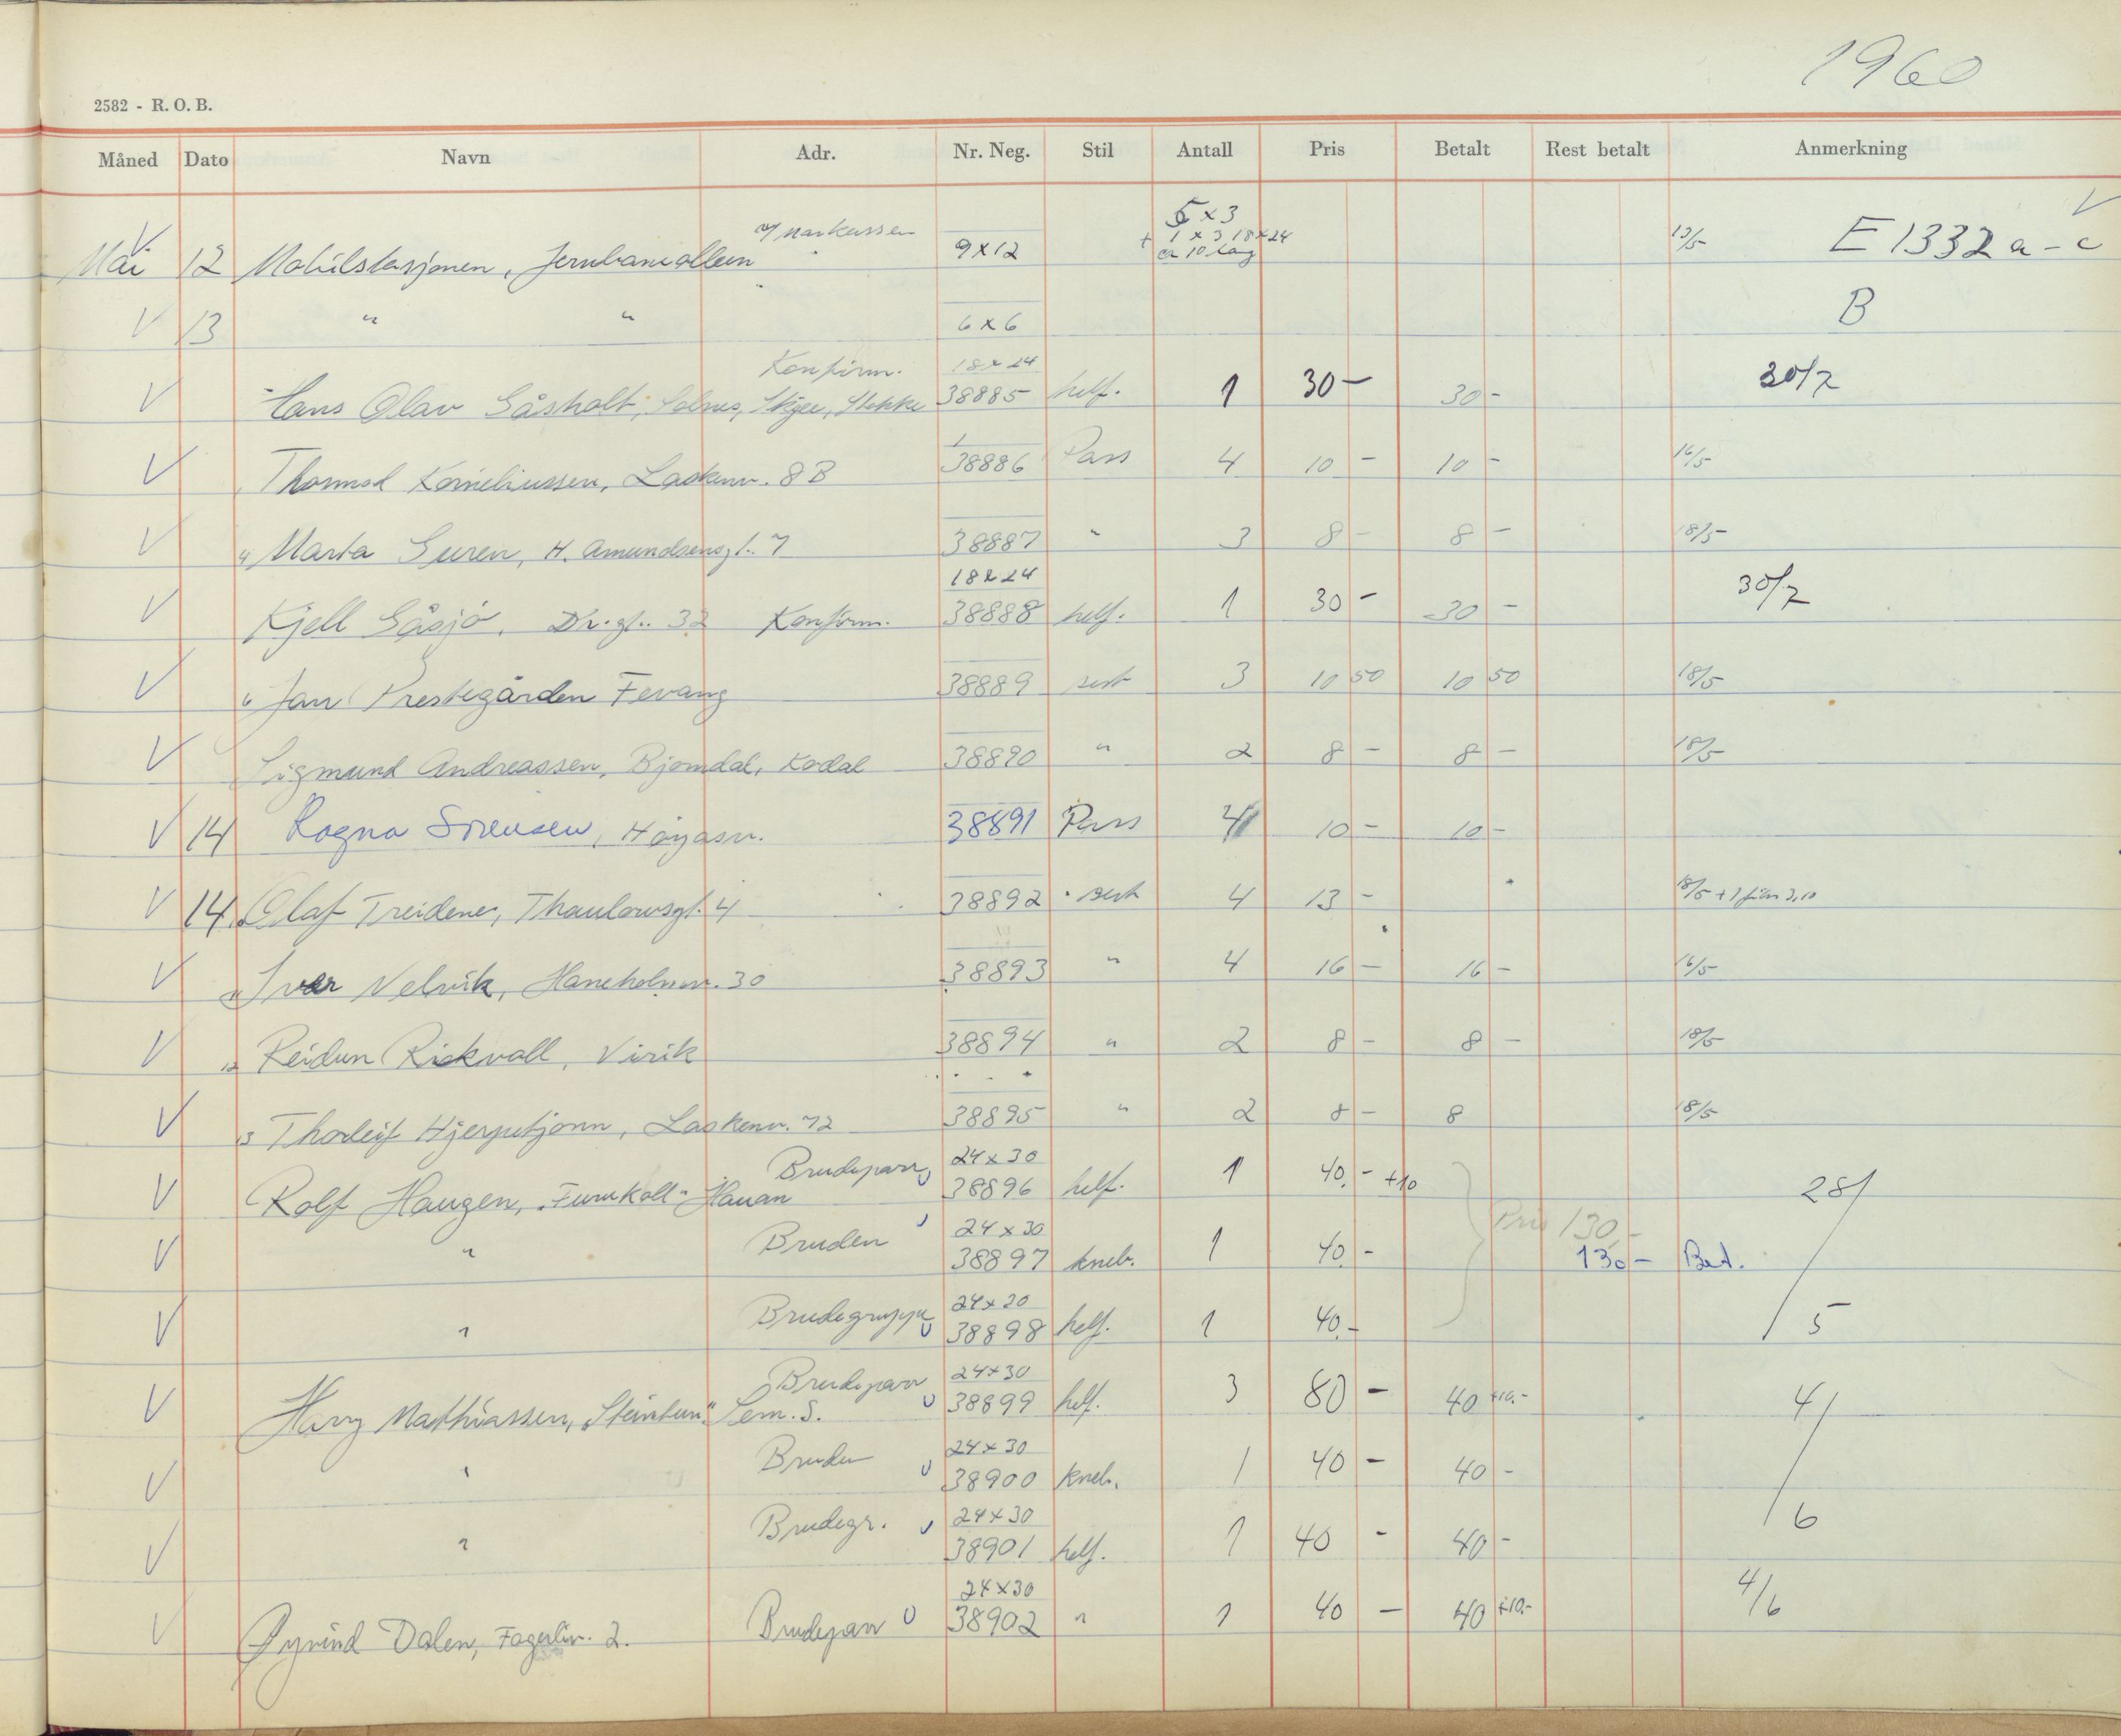 1960
2582 - R. O. B.
Måned Dato Navn Adr. Nr. Neg. Stil Antall Pris Betalt Rest betalt Anmerkning
Mai 12 Mobilstasjonen, Jernbanealleen v/ Markussen 9x12 5 x 3 + 1 x 3 18x24 13/5 E 1332 a - c
13 " " 6 x 6 B
Konfirm. 18x24
Hans Olav Gåsholt, Solnes, Skjee, Stokke 38885 helf. 1 30 - 30 - 30/7
Thormod Korneliussen, Laskenv. 8 B 38886 Pass 4 10 - 10 - 16/5
Marta Guren, H. Amundsensgt. 7 38887 " 3 8 - 8 - 18/5
18x24
Kjell Gåsjø, Dr.gt. 32 Konfirm. 38888 helf. 1 30 - 30 - 30/7
Jan Prestegården Fevang 38889 sert 3 10 50 10 50 18/5
Sigmund Andreassen, Bjørndal, Kodal 38890 " 2 8 - 8 - 18/5
14 Ragna Sørensen, Høyåsv. 38891 Pass 4 10 - 10 -
14 Olaf Treidene, Thaulowsgt. 4 38892 sert 4 13 - 18/5 + 1 film 3,10
Iver Nelvik, Haneholmv. 30 38893 " 4 16 - 16 - 16/5
12 Reidun Rickvoll, Virik 38894 " 2 8 - 8 - 18/5
13 Thorleif Hjerpetjønn, Laskenv. 72 38895 " 2 8 - 8 18/5
Brudepar 24x30
Rolf Haugen, "Furukoll" Hauan 38896 helf. 1 40,- +10 28/5
Pris 130,-
" Bruden 24x30
38897 kneb. 1 40,- 130 - Bet.
" Brudegruppe 24x30
38898 helf. 1 40,-
Brudepar 24x30
Harry Mathiassen, "Steintun" Sem. S. 38899 helf. 3 80 - 40 +10.- 4/6
" Bruden 24x30
38900 kneb. 1 40 - 40 -
" Brudegr. 24x30
38901 helf. 1 40 - 40 -
24x30
Øyvind Dalen, Fagerliv. 2. Brudepar 38902 " 1 40 - 40 +10.- 4/6